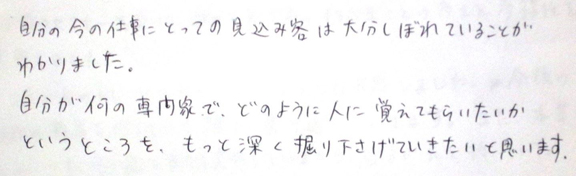 自分の今の仕事にとっての見込み客は大分しぼれていることが
わかりました。
自分が何の専門家で、どのように人に覚えてもらいたいか
というところを、もっと深く掘り下さげていきたいと思います.